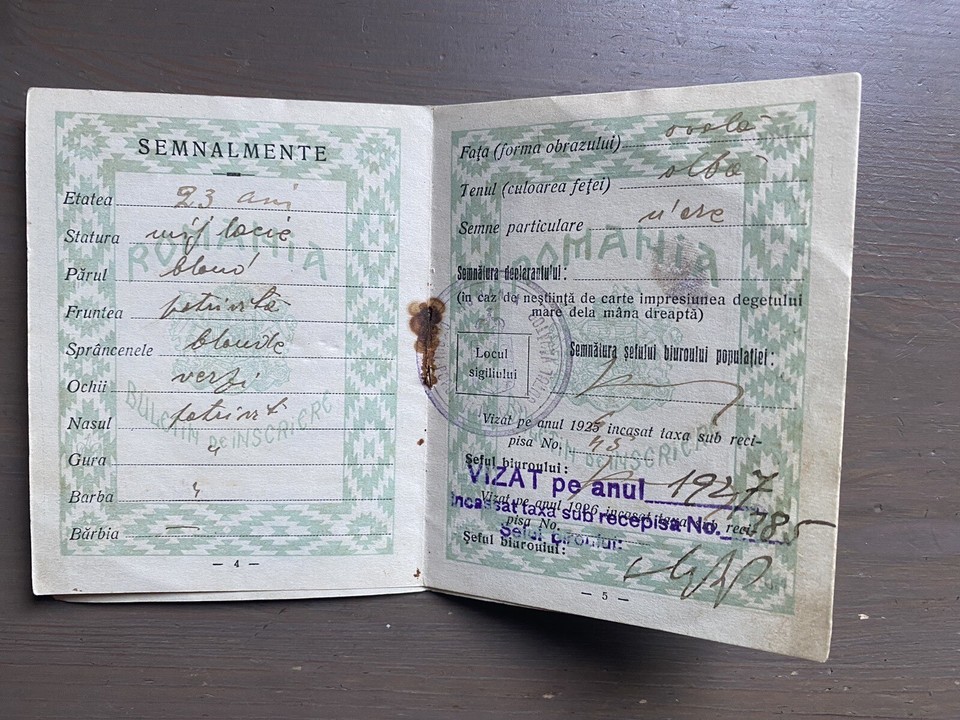 SEMNALMENTE
Etatea 23 ani
Statura mijlocie
Părul blond
Fruntea potrivită
Sprâncenele blonde
Ochii verzi
Nasul potrivit
Gura "
Barba "
Bărbia —
ROMÂNIA
BULETIN DE ÎNSCRIERE
— 4 —
Fața (forma obrazului) ovală
Tenul (culoarea feței) albă
Semne particulare n'are
ROMÂNIA
Semnătura declarantului:
(în caz de neștiință de carte impresiunea degetului
mare dela mâna dreaptă)
Semnătura șefului biuroului populației:
Locul
sigiliului
Vizat pe anul 1925 încasat taxa sub reci-
pisa No. 45
Șeful biuroului:
VIZAT pe anul 1927
Vizat pe anul 1926 încasat taxa sub reci-
Incassat taxa sub recepisa No. 785
pisa No.
Șeful biroului:
Șeful biuroului:
DE ÎNSCRIERE
— 5 —